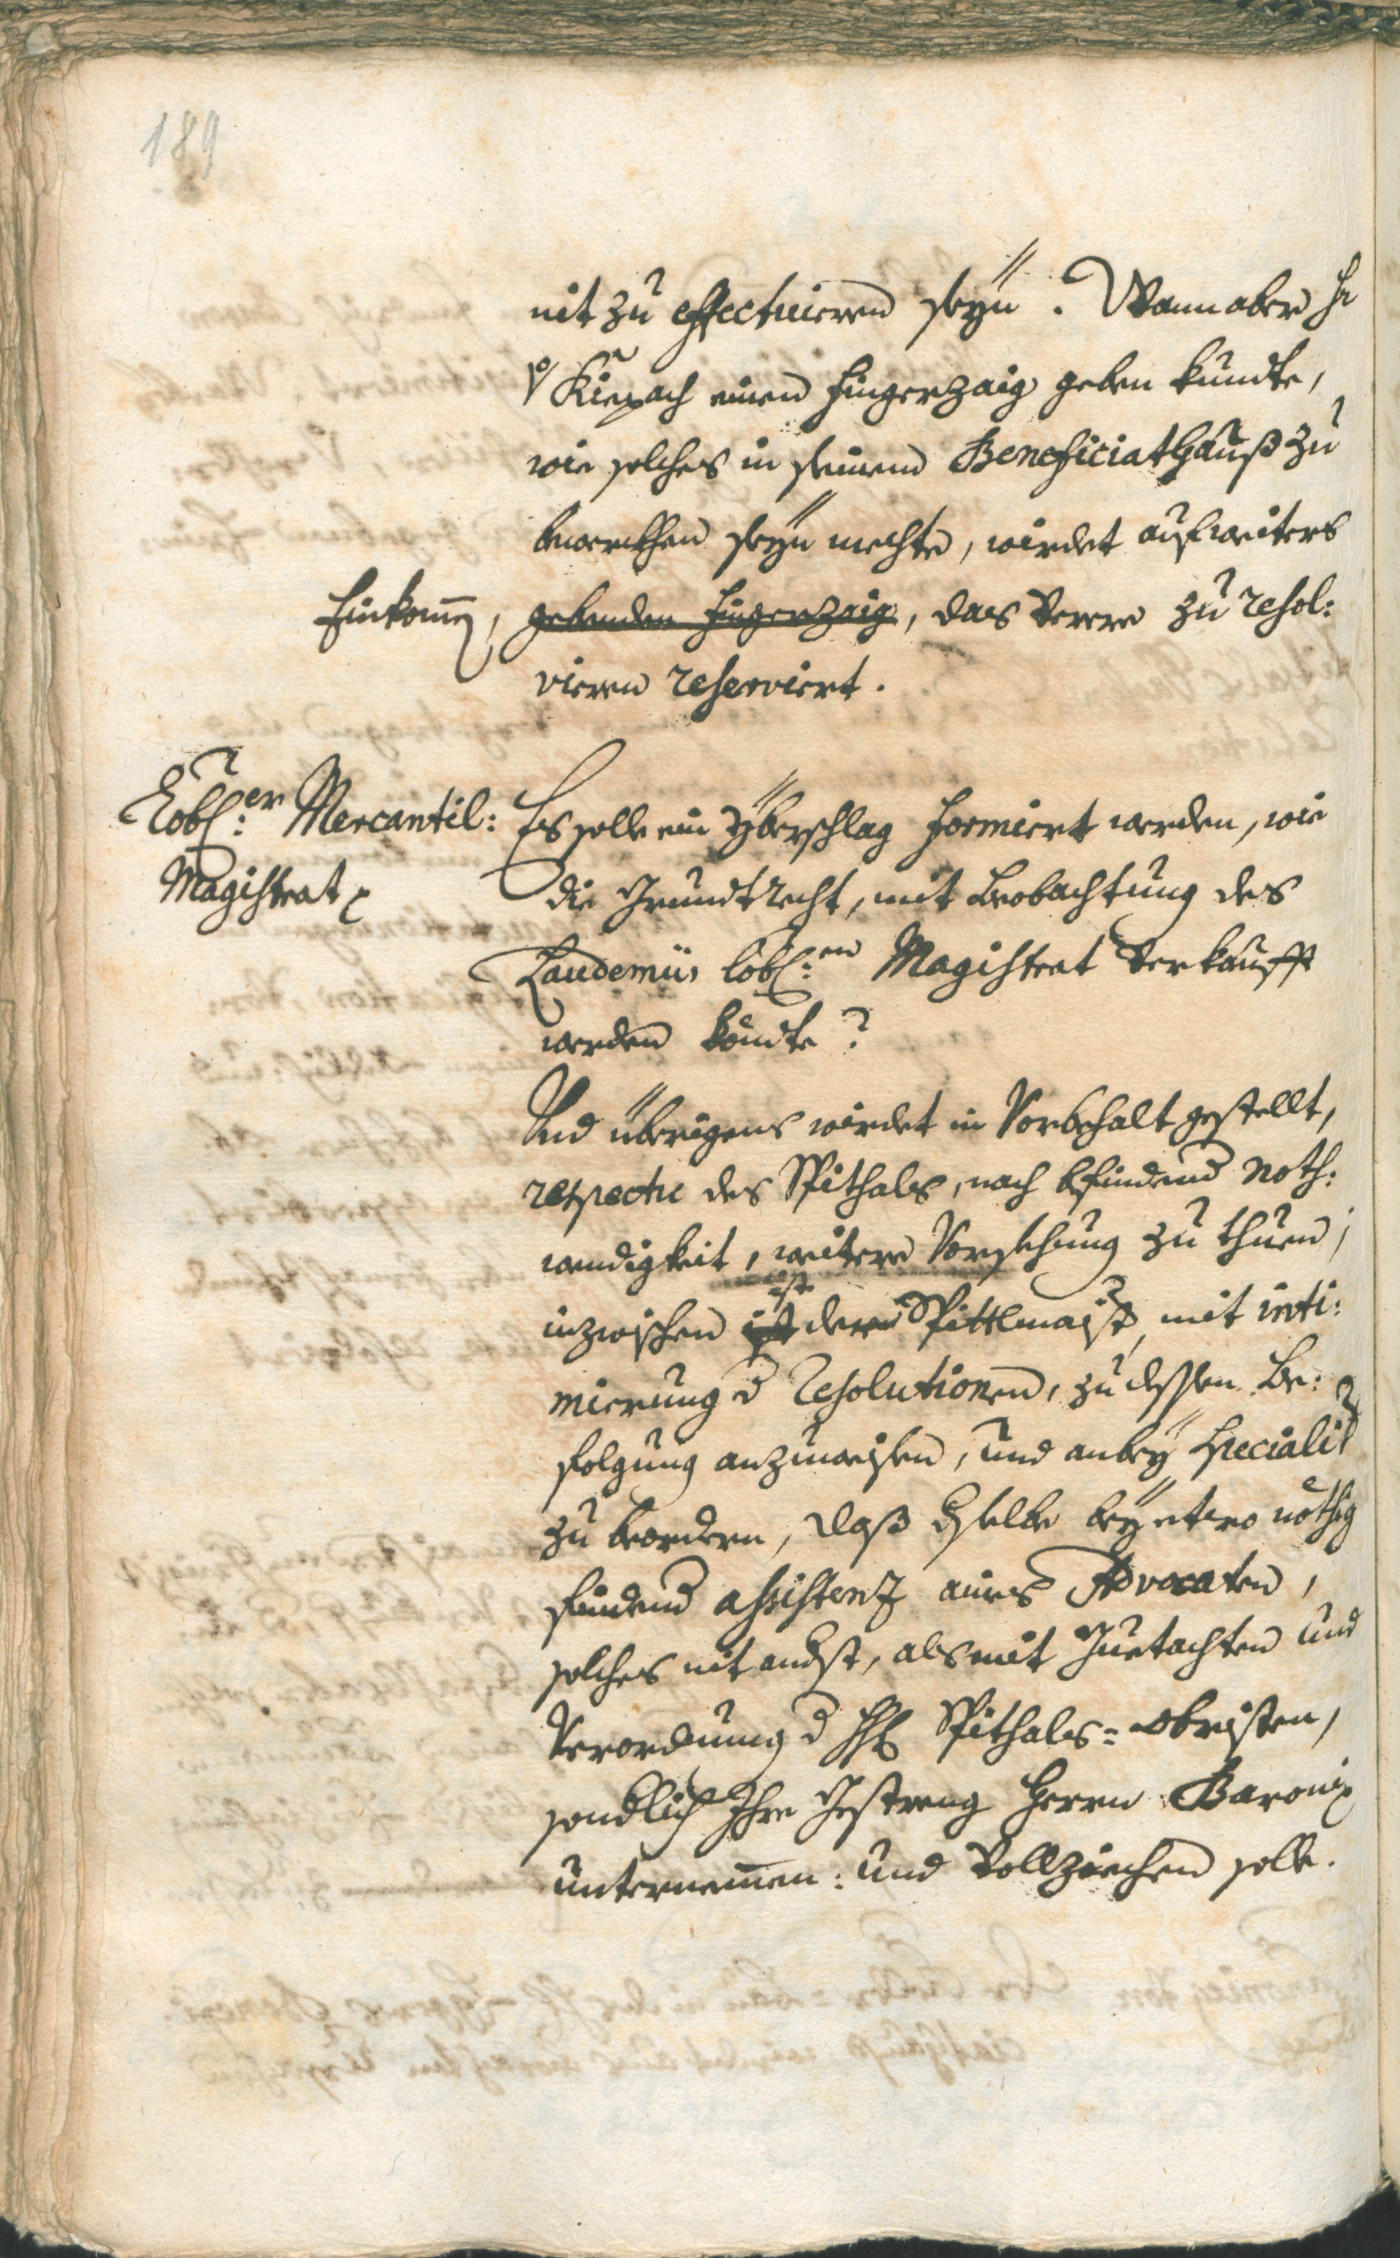 189
nit zu effectuieren seÿn. Wann aber H
v Kiepach einen Fingerzaig geben kundte,
wie solches in seinem Beneficiathauß zu
bewerkhen seÿn mechte, wirdet auf weiters
Einkomen, gebenden Fingerzaig, das Verere zu resol:
vieren reserviert.
Löbl:er Mercantil:
Magistrat
Es solle ein Überschlag formiert werden, wie
die Grundtrecht, mit Beobachtung des
Laudemii, löbl:en Magistrat verkaufft
werden köndte?
Und überigens wirdet in Vorbehalt gestellt,
respectu des Spithals, nach befindend Noth:
wendigkeit, weitere Vorsehung zu thuen,
inzwischen ist ist deme Spittlmaistr, mit inti:
mierung d Resolutionen, zu dessen Be:
folgung anzuweisen, und anbeÿ specialit
zu beordern, daß dselbe beÿ etwo nöthig
findend assistenz aines Advocaten,
solches nit andst, als mit Guetachten und
Verordnung d HH Spithals-Obristen,
sondlich Ihre Gestreng Herrn Baroni
unternemen: und vollziechen solle.